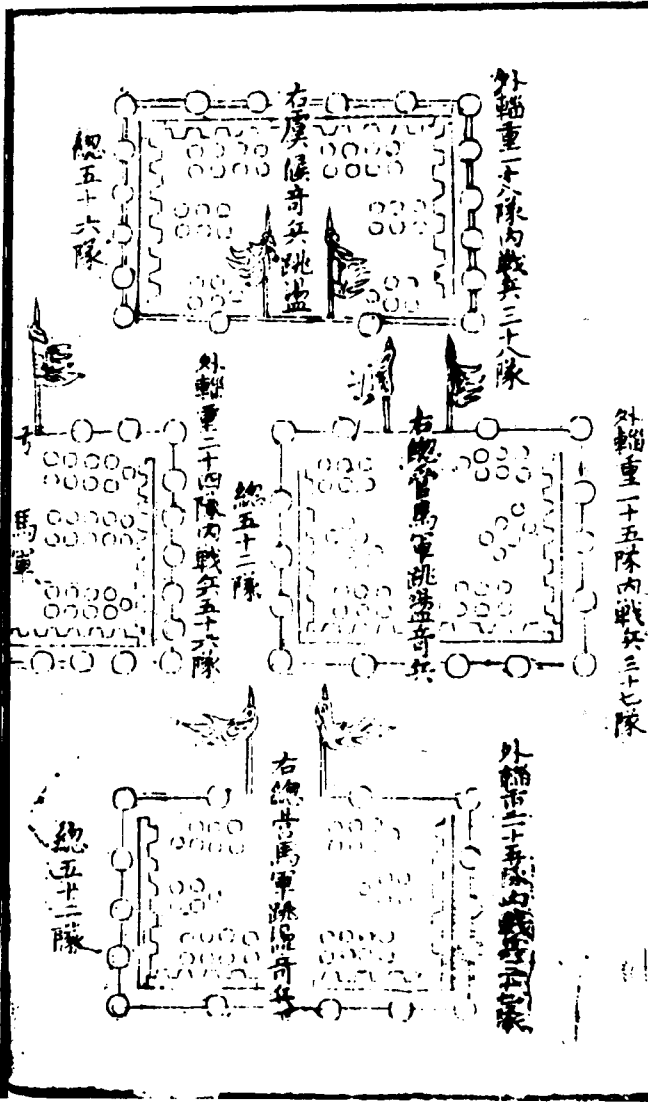 外輜重一十八隊內戰兵三十八隊
右虞候奇兵跳盪
總五十六隊
外輜重一十五隊內戰兵三十七隊
右總管馬軍跳盪奇兵
總五十二隊
外輜重二十四隊內戰兵五十六隊
馬軍
外輜重一十五隊內戰兵三十七隊
右總管馬軍跳盪奇兵
總五十二隊